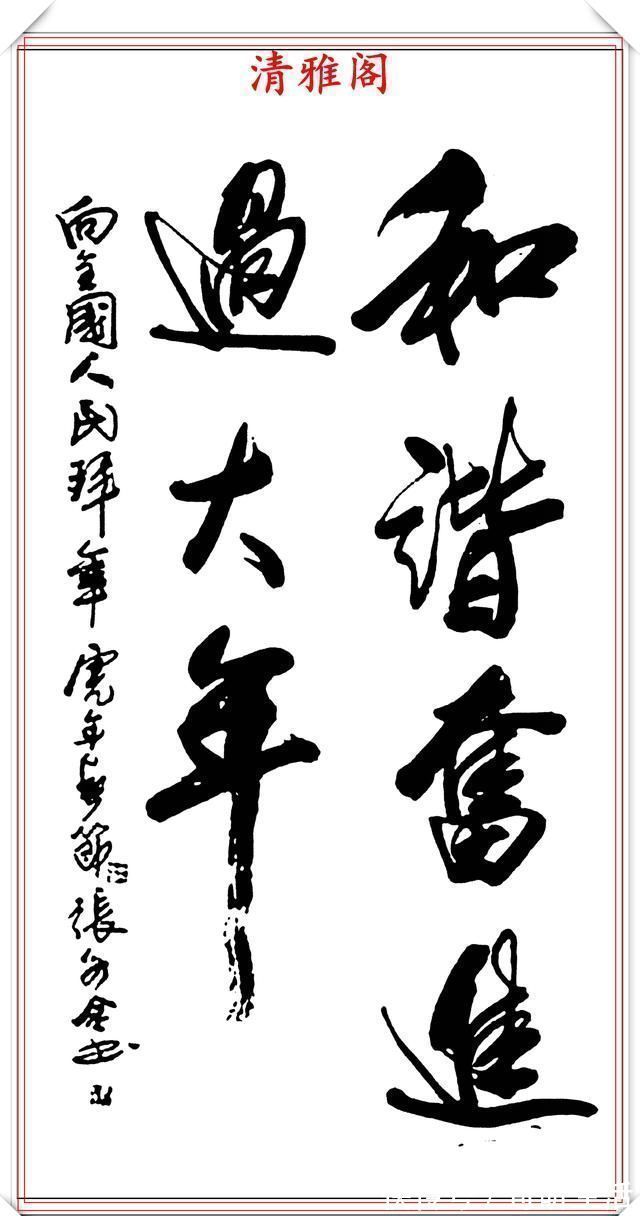 清雅阁
和諧奮進
過大年
向全國人民拜年 虎年春節 張 書